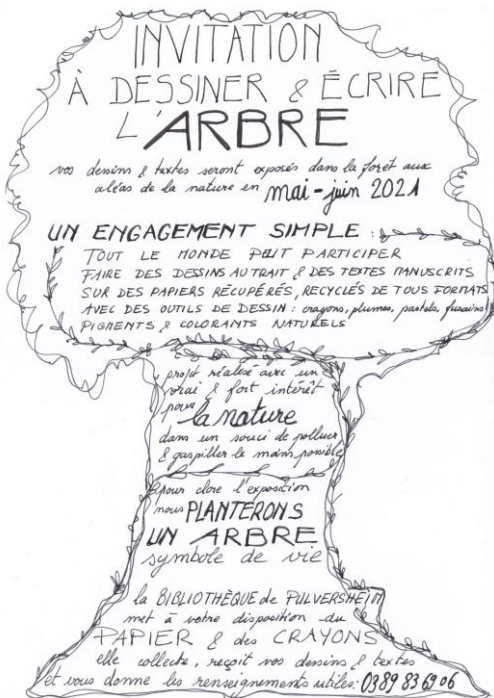 INVITATION
À DESSINER & ÉCRIRE
L'ARBRE
vos dessins & textes seront exposés dans la forêt aux
aléas de la nature en mai-juin 2021
UN ENGAGEMENT SIMPLE :
TOUT LE MONDE PEUT PARTICIPER
FAIRE DES DESSINS AU TRAIT & DES TEXTES MANUSCRITS
SUR DES PAPIERS RÉCUPÉRÉS, RECYCLÉS DE TOUS FORMATS
AVEC DES OUTILS DE DESSIN : crayons, plumes, pastels, fusains
PIGMENTS & COLORANTS NATURELS
projet réalisé avec un
vrai & fort intérêt
pour la nature
dans un souci de polluer
& gaspiller le moins possible
pour clore l'exposition
nous PLANTERONS
UN ARBRE
symbole de vie
la BIBLIOTHÈQUE de PULVERSHEIM
met à votre disposition du
PAPIER & des CRAYONS
elle collecte, reçoit vos dessins & textes
et vous donne les renseignements utiles: 0389 83 69 06